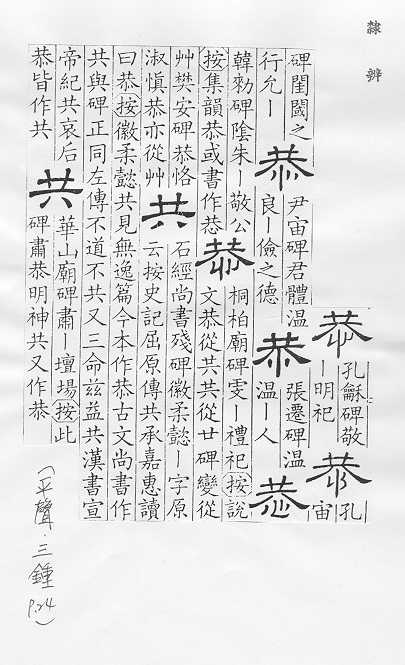 隸辨
恭
孔龢碑敬
丨明祀
恭
孔
宙
碑閨閫之
行允丨
恭
尹宙碑君體溫
良丨儉之德
恭
張遷碑溫
溫丨人
恭
韓勑碑陰朱丨敬公
按集韻恭或書作㳟
恭
桐柏廟碑雯丨禮祀按說
文恭從共共從廿碑變從
艸樊安碑恭恪
淑慎恭亦從艸
共
石經尚書殘碑徽柔懿丨字原
云按史記屈原傳共承嘉惠讀
曰恭按徽柔懿共見無逸篇今本作恭古文尚書作
共與碑正同左傳不道不共又三命茲益共漢書宣
帝紀共哀后
恭皆作共
共
華山廟碑肅丨壇場按此
碑肅恭明神共又作恭
(平聲·三鍾 P.24)